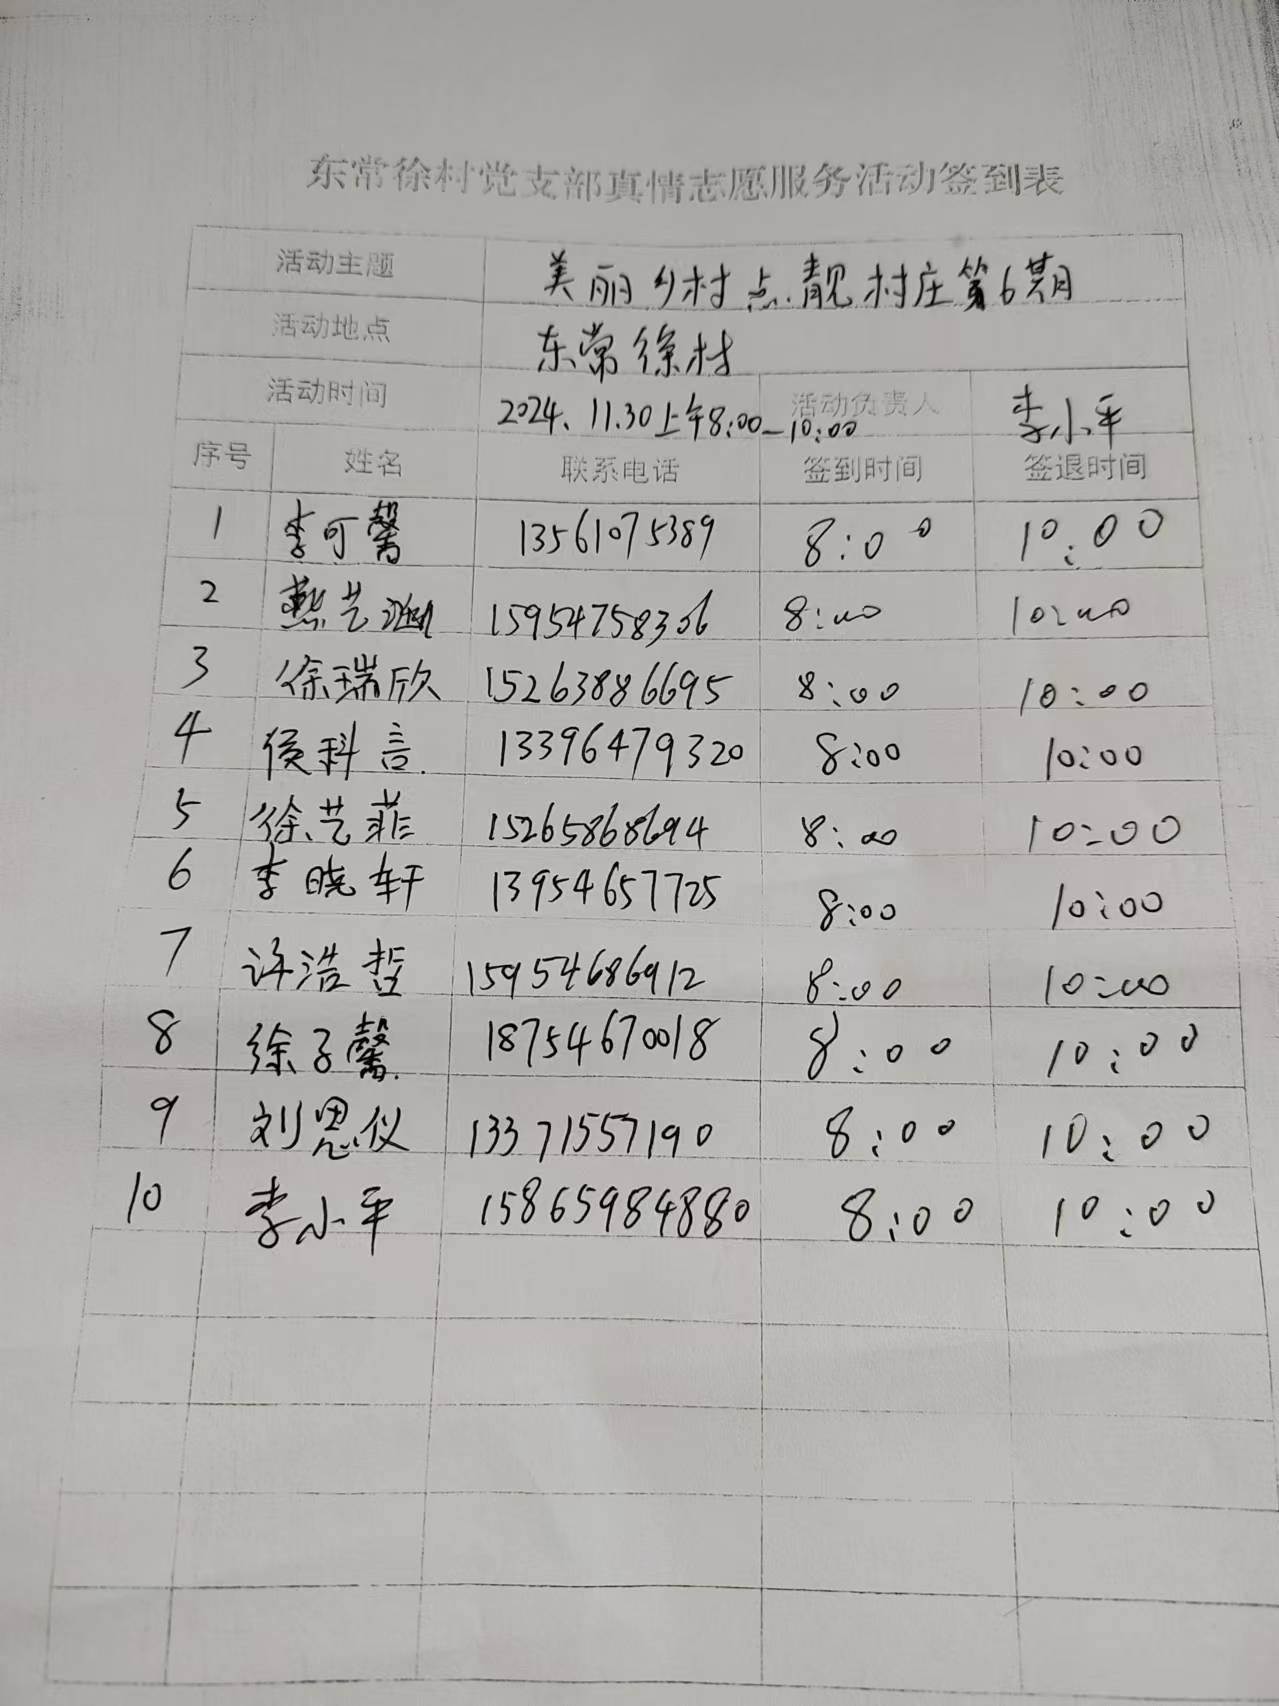 东常徐村党支部真情志愿服务活动签到表
活动主题 美丽乡村点靓村庄第6期
活动地点 东常徐村
活动时间 2024.11.30上午8:00-10:00 活动负责人 李小平
序号 姓名 联系电话 签到时间 签退时间
1 李可馨 13561075389 8:00 10:00
2 燕艺 15954758306 8:00 10:00
3 徐瑞欣 15263886695 8:00 10:00
4 侯科言 13396479320 8:00 10:00
5 徐艺菲 15265868694 8:00 10:00
6 李晓轩 13954657725 8:00 10:00
7 许浩哲 15954686912 8:00 10:00
8 徐子馨 18754670018 8:00 10:00
9 刘思仪 13371557190 8:00 10:00
10 李小平 15865984880 8:00 10:00